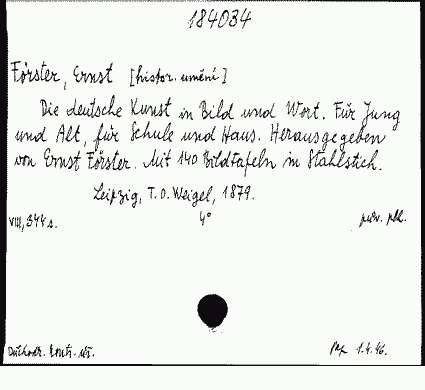 184034
Förster, Ernst [histor. umění]
Die deutsche Kunst in Bild und Wort. Für Jung
und Alt, für Schule und Haus. Herausgegeben
von Ernst Förster. Mit 140 Bildtafeln in Stahlstich.
Leipzig, T. O. Weigel, 1879.
VIII, 344 s. 4° pův. pl.
1.4.46.